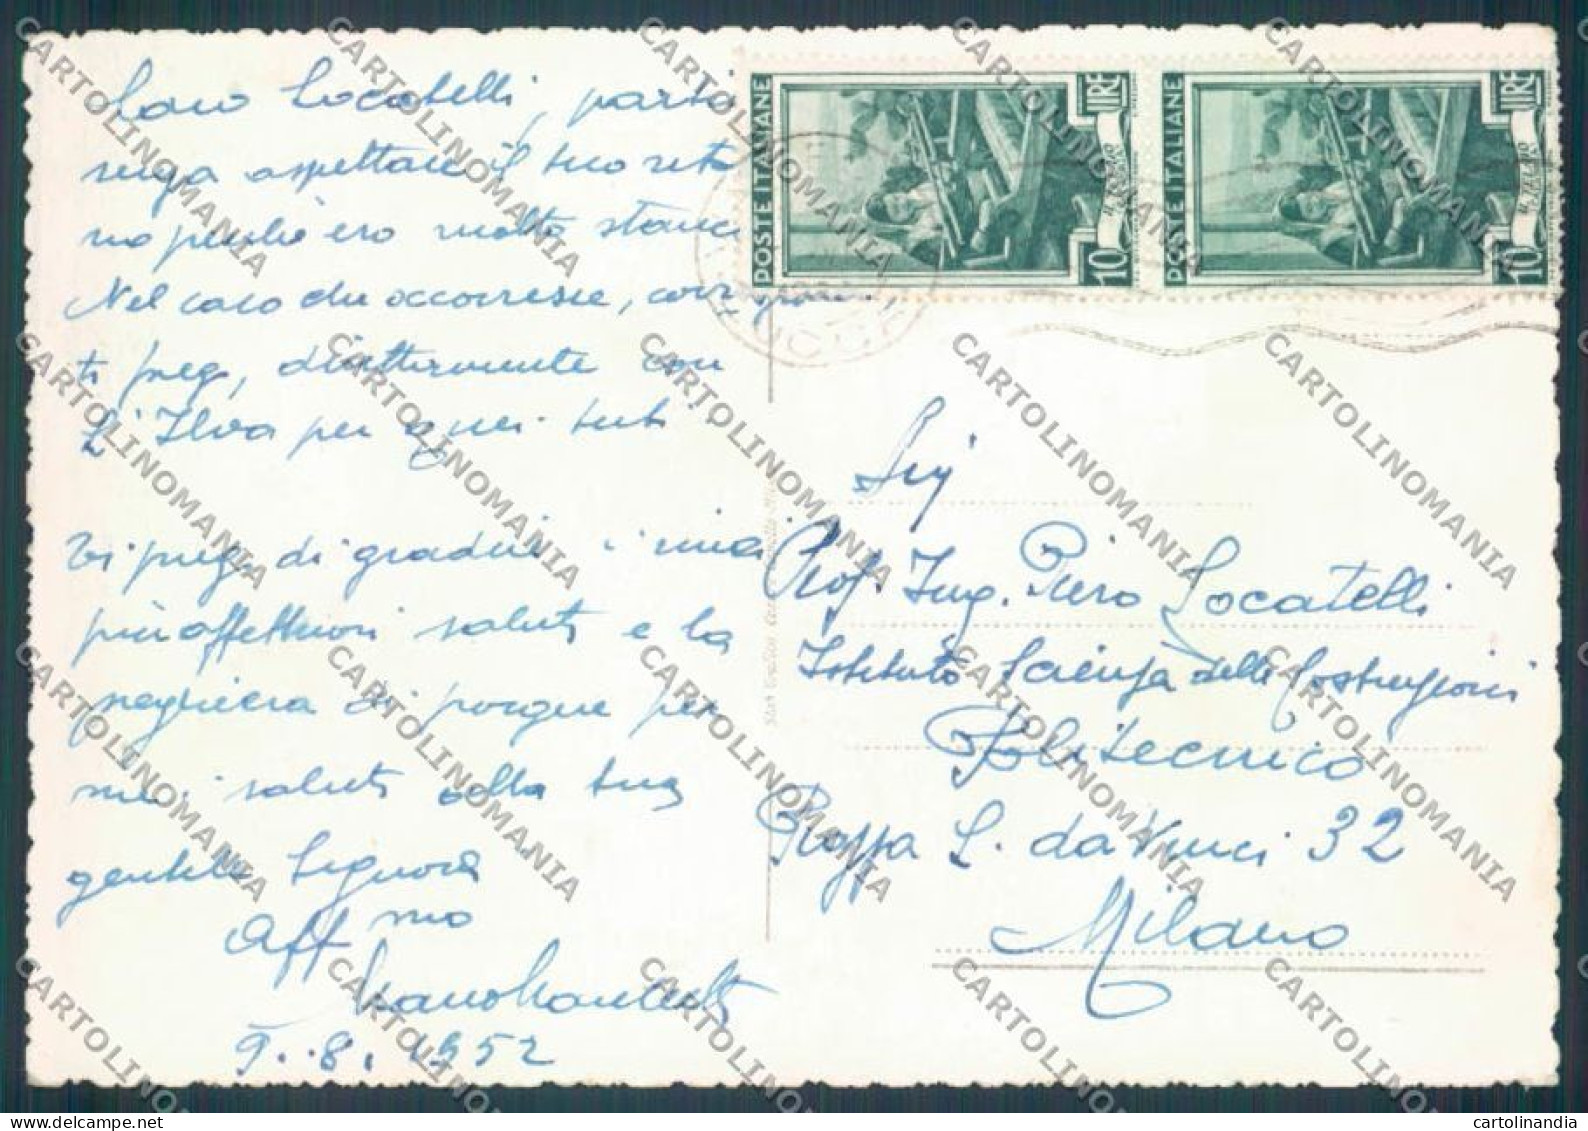 Caro Locatelli, parti
senza aspettare il tuo retor
no perchè ero molto stanco
Nel caso che occorresse, corrispondi
ti prego, direttamente con
L'Ilva per quei tubi
Ti prego di gradire i miei
più affettuosi saluti e la
preghiera di porgere per
me i saluti alla tua
gentile Signora
Aff mo
9.8.1952
POSTE ITALIANE
10 LIRE
POSTE ITALIANE
10 LIRE
Sig
Prof. Ing. Piero Locatelli
Istituto Scienza delle Costruzioni
Politecnico
Piazza L. da Vinci 32
Milano
CARTOLINOMANIA
cartolinandia